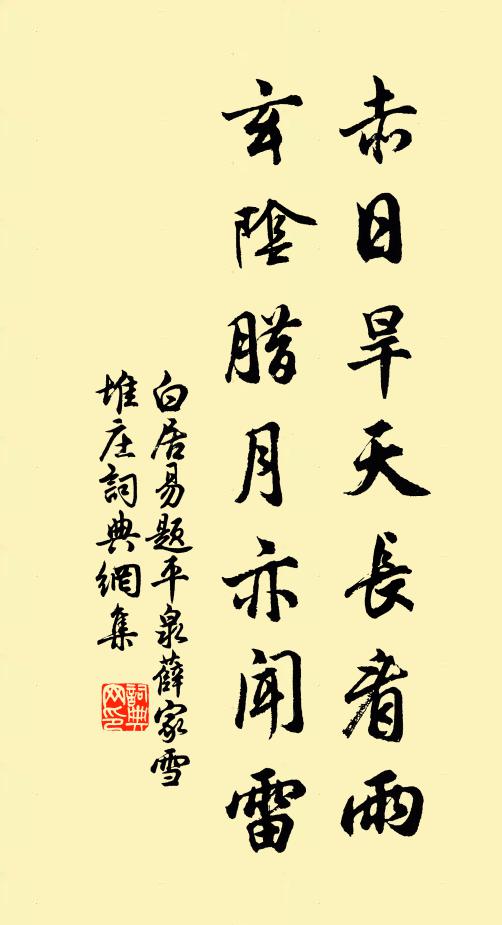 赤日旱天長看雨
玄陰腊月亦聞雷
白居易題平泉薛家雪
堆庄詞典網集
詞典网印